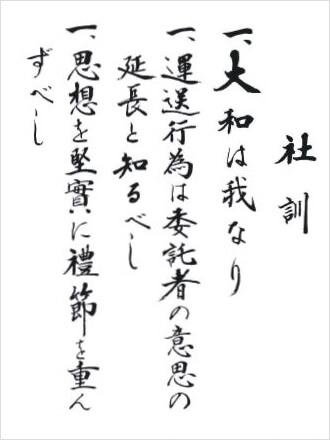 社訓
一、大和は我なり
一、運送行為は委託者の意思の
延長と知るべし
一、思想を堅實に禮節を重ん
ずべし